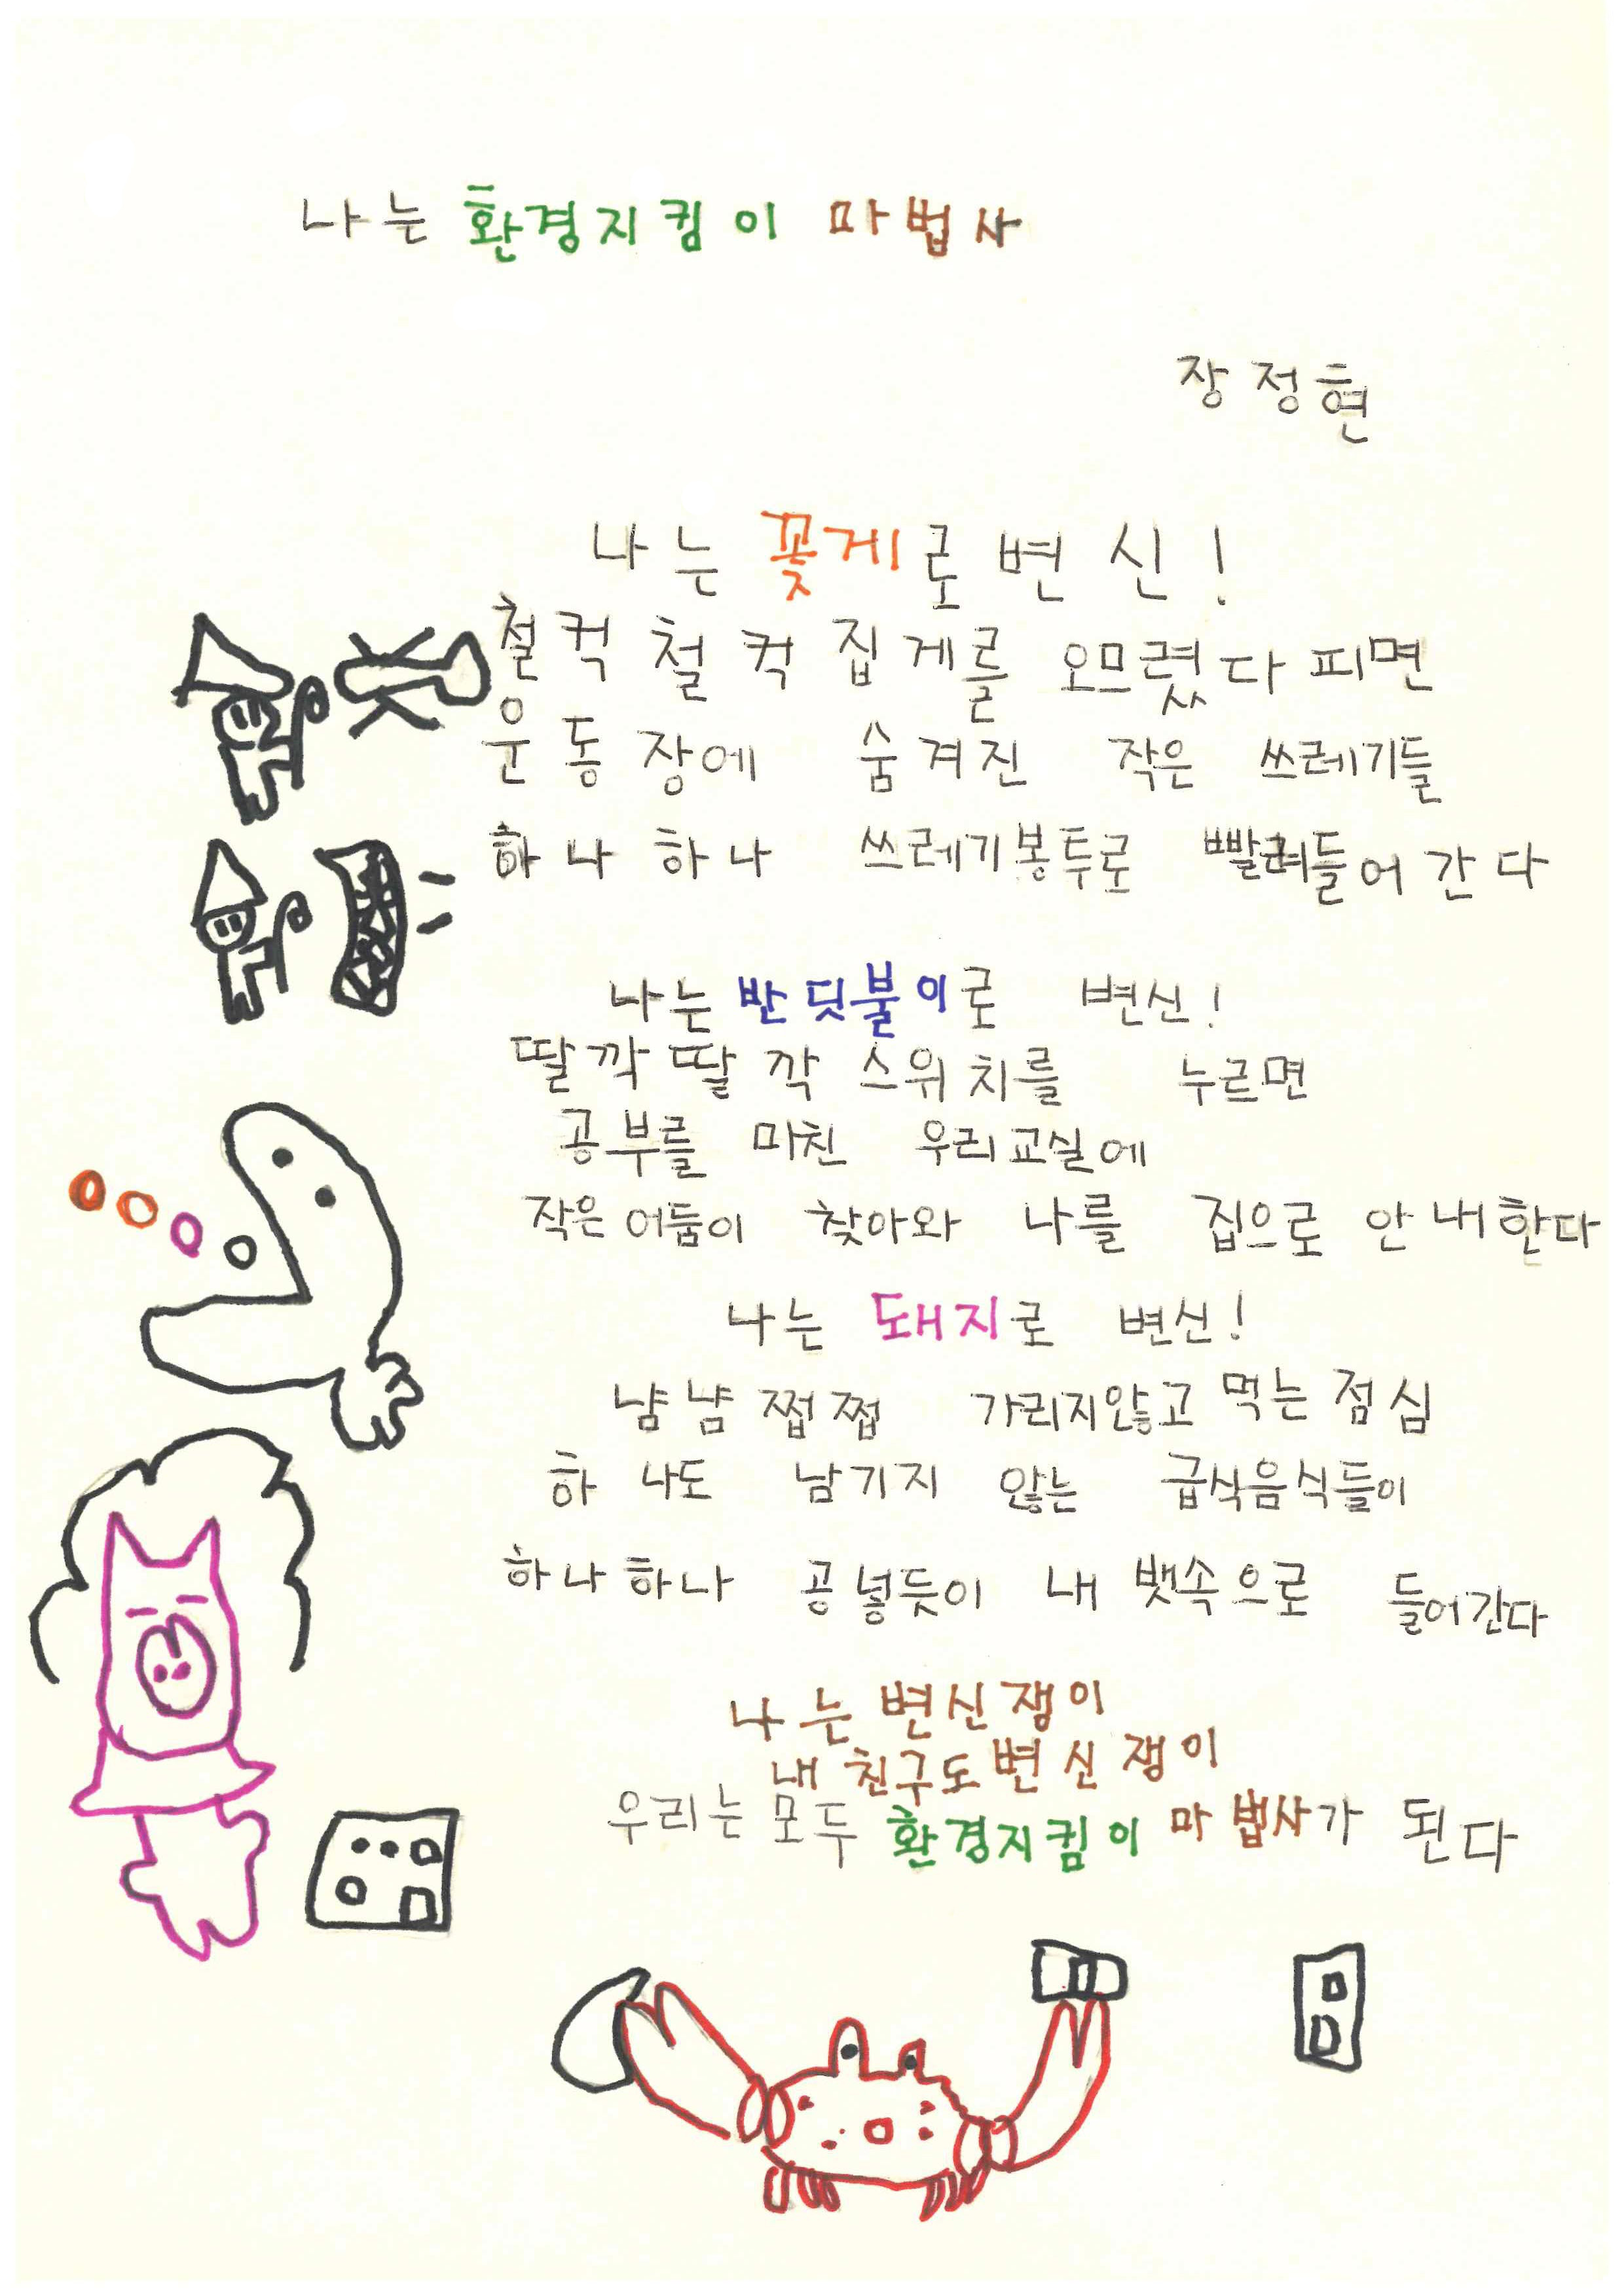 나는 환경지킴이 마법사
장정현
나는 꽃게로 변신!
철컥 철컥 집게를 오므렸다 피면
운동장에 숨겨진 작은 쓰레기들
하나 하나 쓰레기봉투로 빨려들어 간다
나는 반딧불이로 변신!
딸깍 딸깍 스위치를 누르면
공부를 마친 우리교실에
작은 어둠이 찾아와 나를 집으로 안내한다
나는 돼지로 변신!
냠냠 쩝쩝 가리지않고 먹는 점심
하나도 남기지 않는 급식음식들이
하나하나 공넣듯이 내 뱃속으로 들어간다
나는 변신쟁이
내 친구도 변신쟁이
우리는 모두 환경지킴이 마법사가 된다